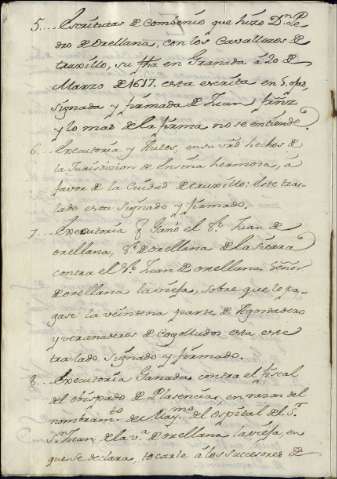 5... Escriuras de Combenio que hizo Dn. Pe-
dro de Orellana, con los Cavalleros de
truxillo, su fha en Granada a 20 de
Marzo de 1617. esta escrita en 5. ojas
signada y firmada de Juan
y lo mas de la firma no se entiende
6. Executoria y Autos, en sus hechos de
la Jurisdicion de Ensina hermosa, a
favor de la Ciudad de truxillo: este tras-
lado esta signado y firmado.
7. Executoria q. Ganó el Sr. Juan de
orellana, Sr. de orellana de la Sierra
contra el Sr. Juan de orellana Señor
de orellana la vieja, sobre que le pa-
gase la veintena parte de Agostaderos
y veranaderos de cogolludos esta este
traslado signado y firmado.
8. Executoria Ganada contra el fiscal
del obispado de Plasencia, en razon del
nombramto. de Maymo. del ospital de Sr.
Sn. Juan, de la va. de orellana la vieja, en
que se declara, tocarle a los sucesores de